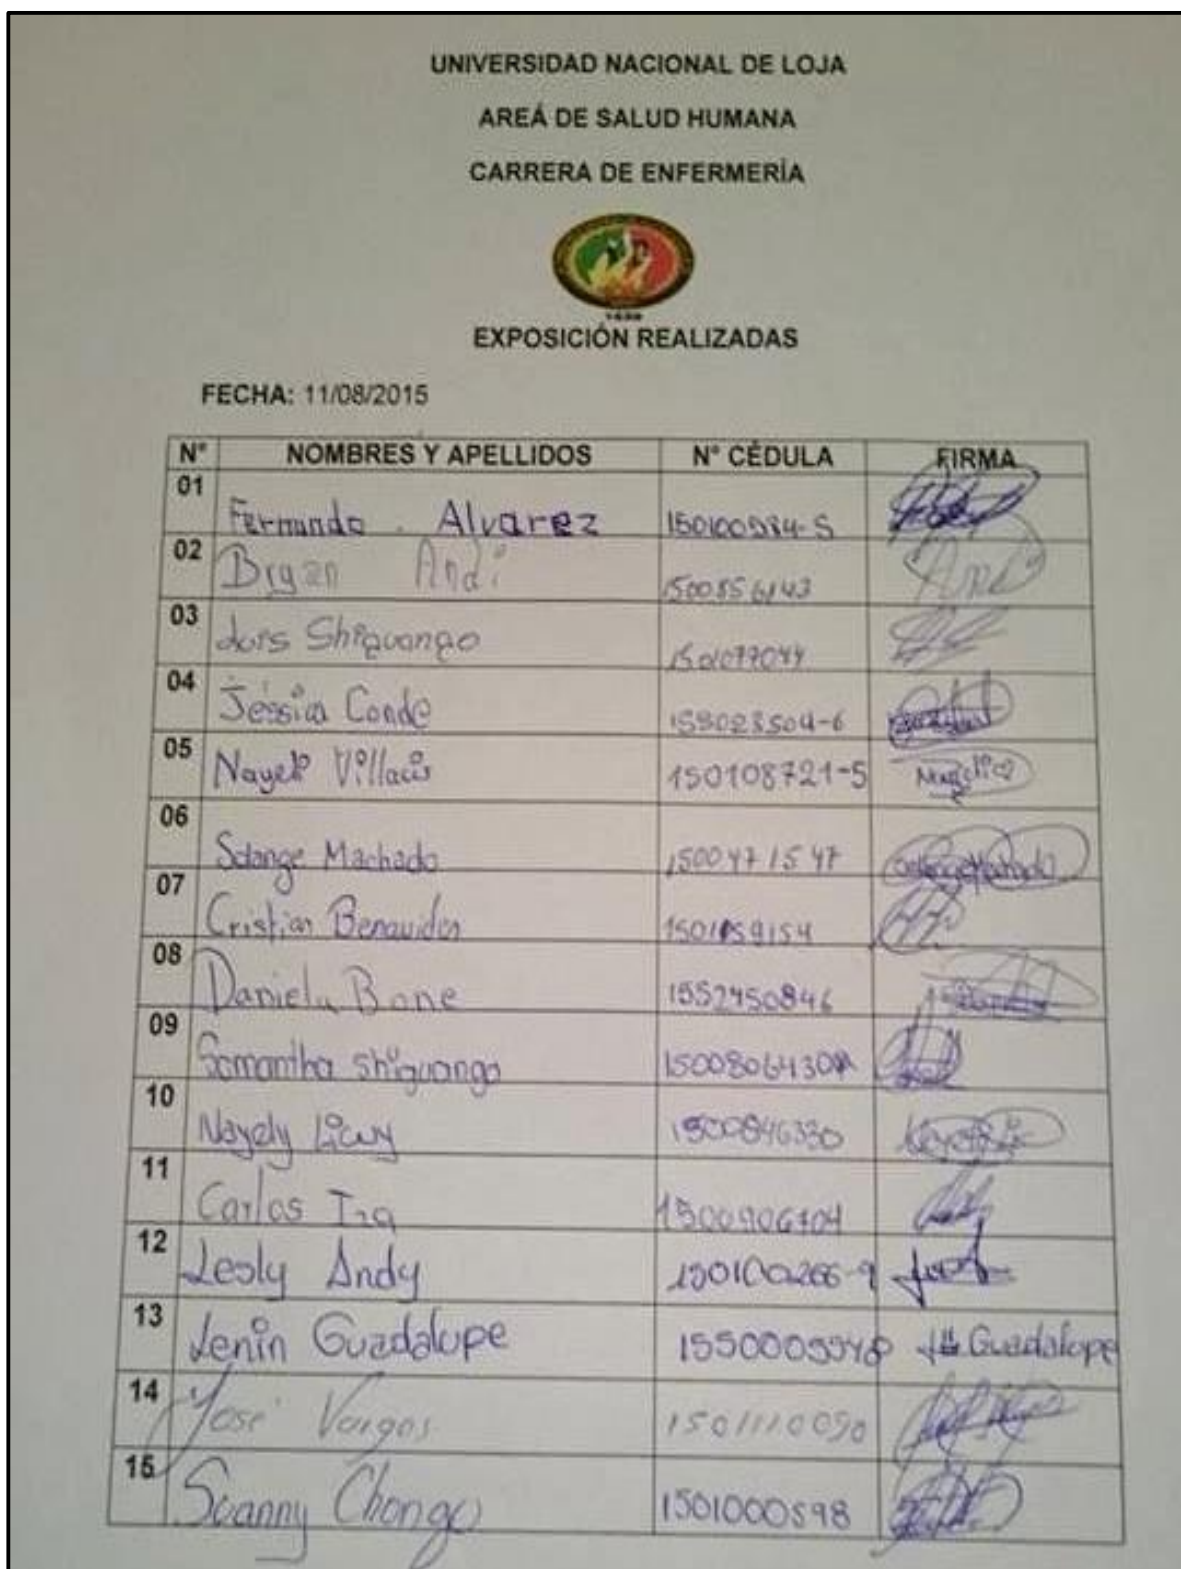 UNIVERSIDAD NACIONAL DE LOJA
AREÁ DE SALUD HUMANA
CARRERA DE ENFERMERÍA
EXPOSICIÓN REALIZADAS
FECHA: 11/08/2015
N° NOMBRES Y APELLIDOS N° CÉDULA FIRMA
01 Fernando Alvarez
02 Bryan Andi
03 Luis Shiguango 1501077044
04 Jessica Conde
05 Nayeli Villacis 150108721-5
06 Solange Machado 1500471547 Solange Machado
07 Cristian Benavides
08 Daniela Bone 1552450846
09 Samantha Shiguango
10 Nayely Licuy 1500846330
11 Carlos 1500906704
12 Lesly Andy 150100266-9
13 Lenin Guadalupe Guadalupe
14 José Vargas 1501110090
15 Chongo 1501000598